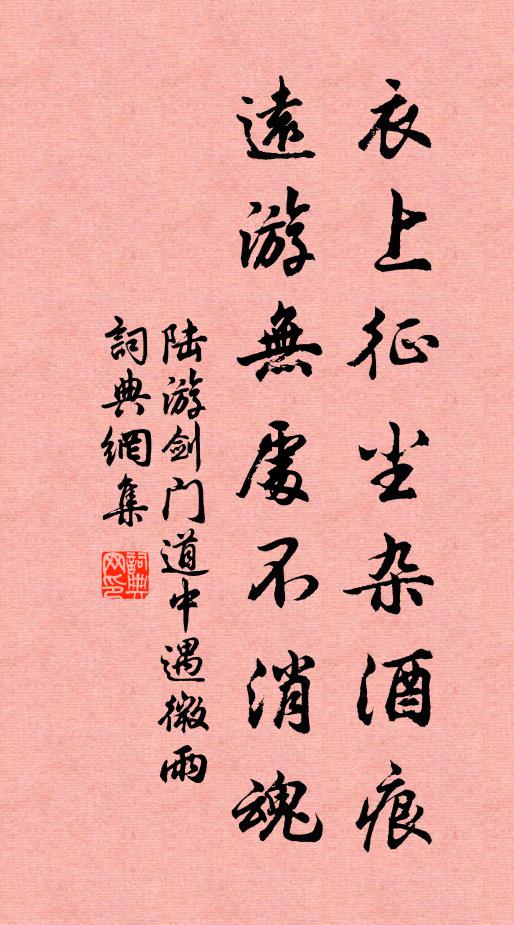 衣上征尘杂酒痕
遠游無處不消魂
陆游剑门道中遇微雨
詞典網集
詞典網印